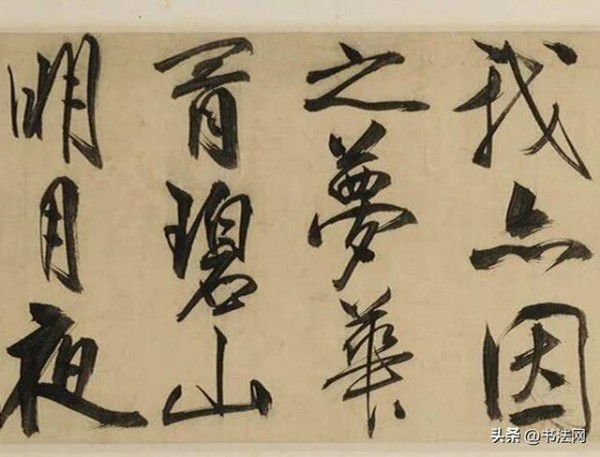 我亦因
之夢華
胥碧山
明月夜
头条 @书法网